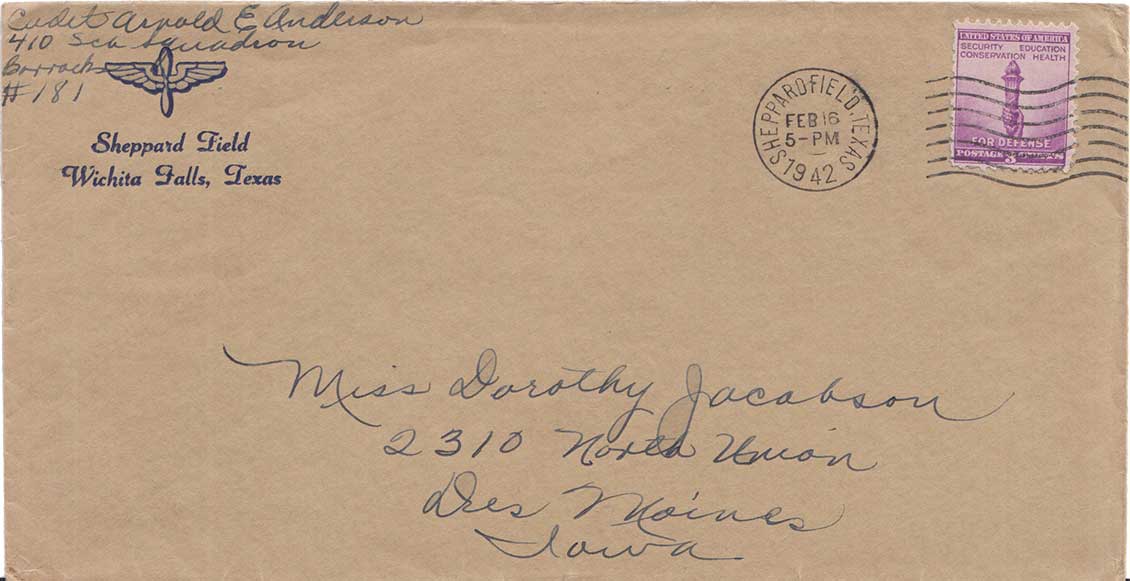 Cadet Arnold E Anderson
410 Sch Squadron
Barracks
#181
Sheppard Field
Wichita Falls, Texas
SHEPPARD FIELD, TEXAS
FEB 16
5-PM
1942
UNITED STATES OF AMERICA
SECURITY EDUCATION
CONSERVATION HEALTH
FOR DEFENSE
POSTAGE 3 CENTS
Miss Dorothy Jacobson
2310 North Union
Des Moines
Iowa